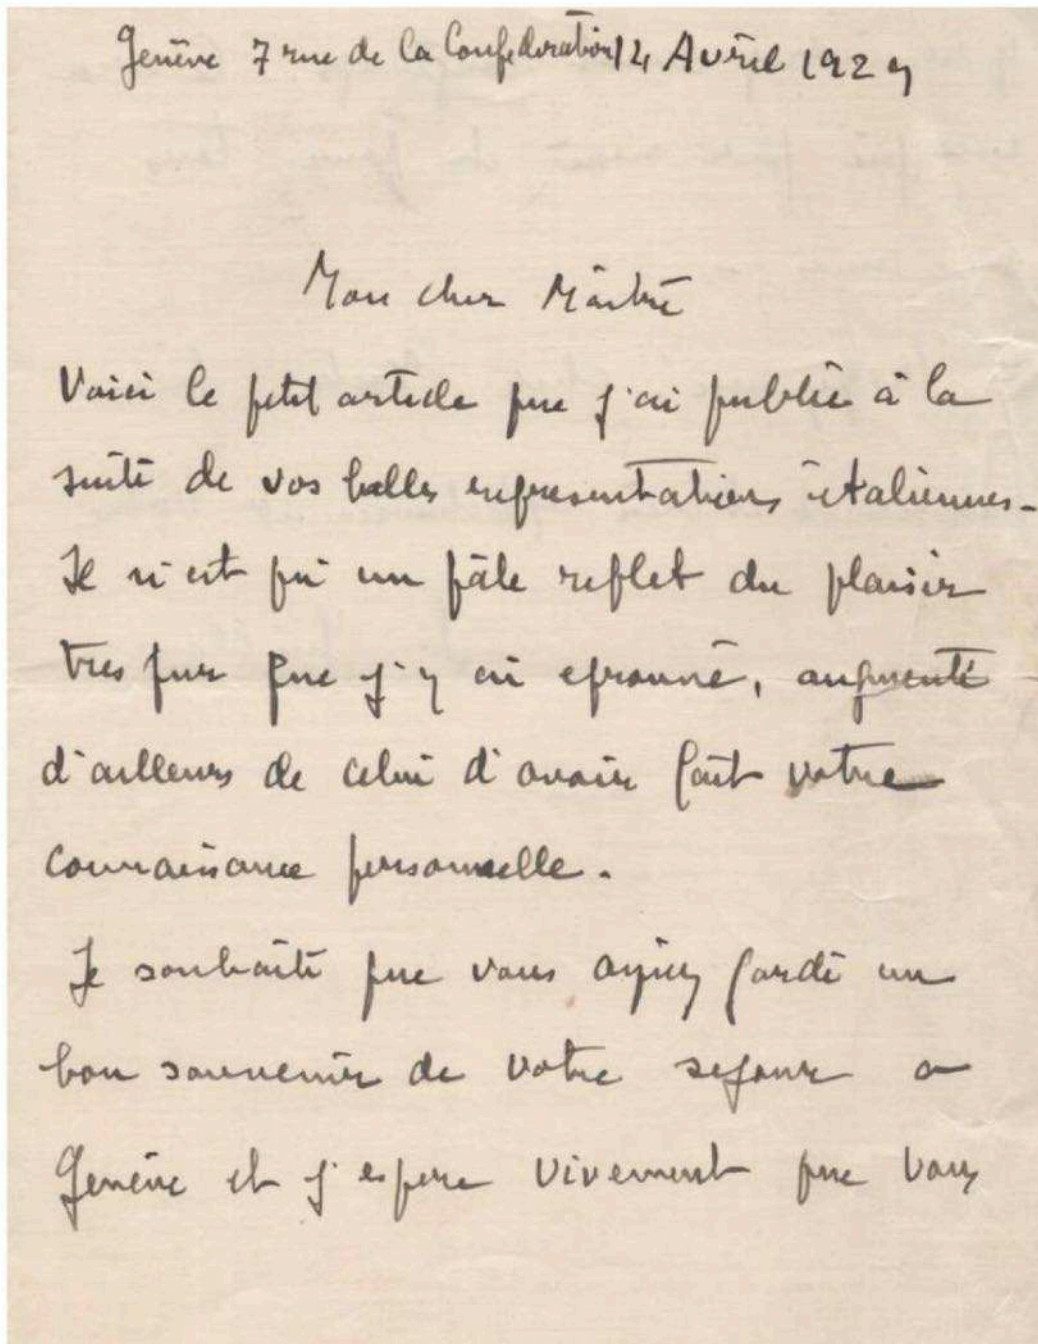 Genève 7 rue de la Confederation 14 Avril 1929
Mon cher Maître
Voici le petit article que j'ai publié à la
suite de vos belles representations italiennes.
Il n'est qu'un pâle reflet du plaisir
tres pur que j'y ai eprouvé, augmenté
d'ailleurs de celui d'avoir fait votre
connaissance personnelle.
Je souhaite que vous ayiez gardé un
bon souvenir de votre sejour a
Genève et j'espere vivement que vous